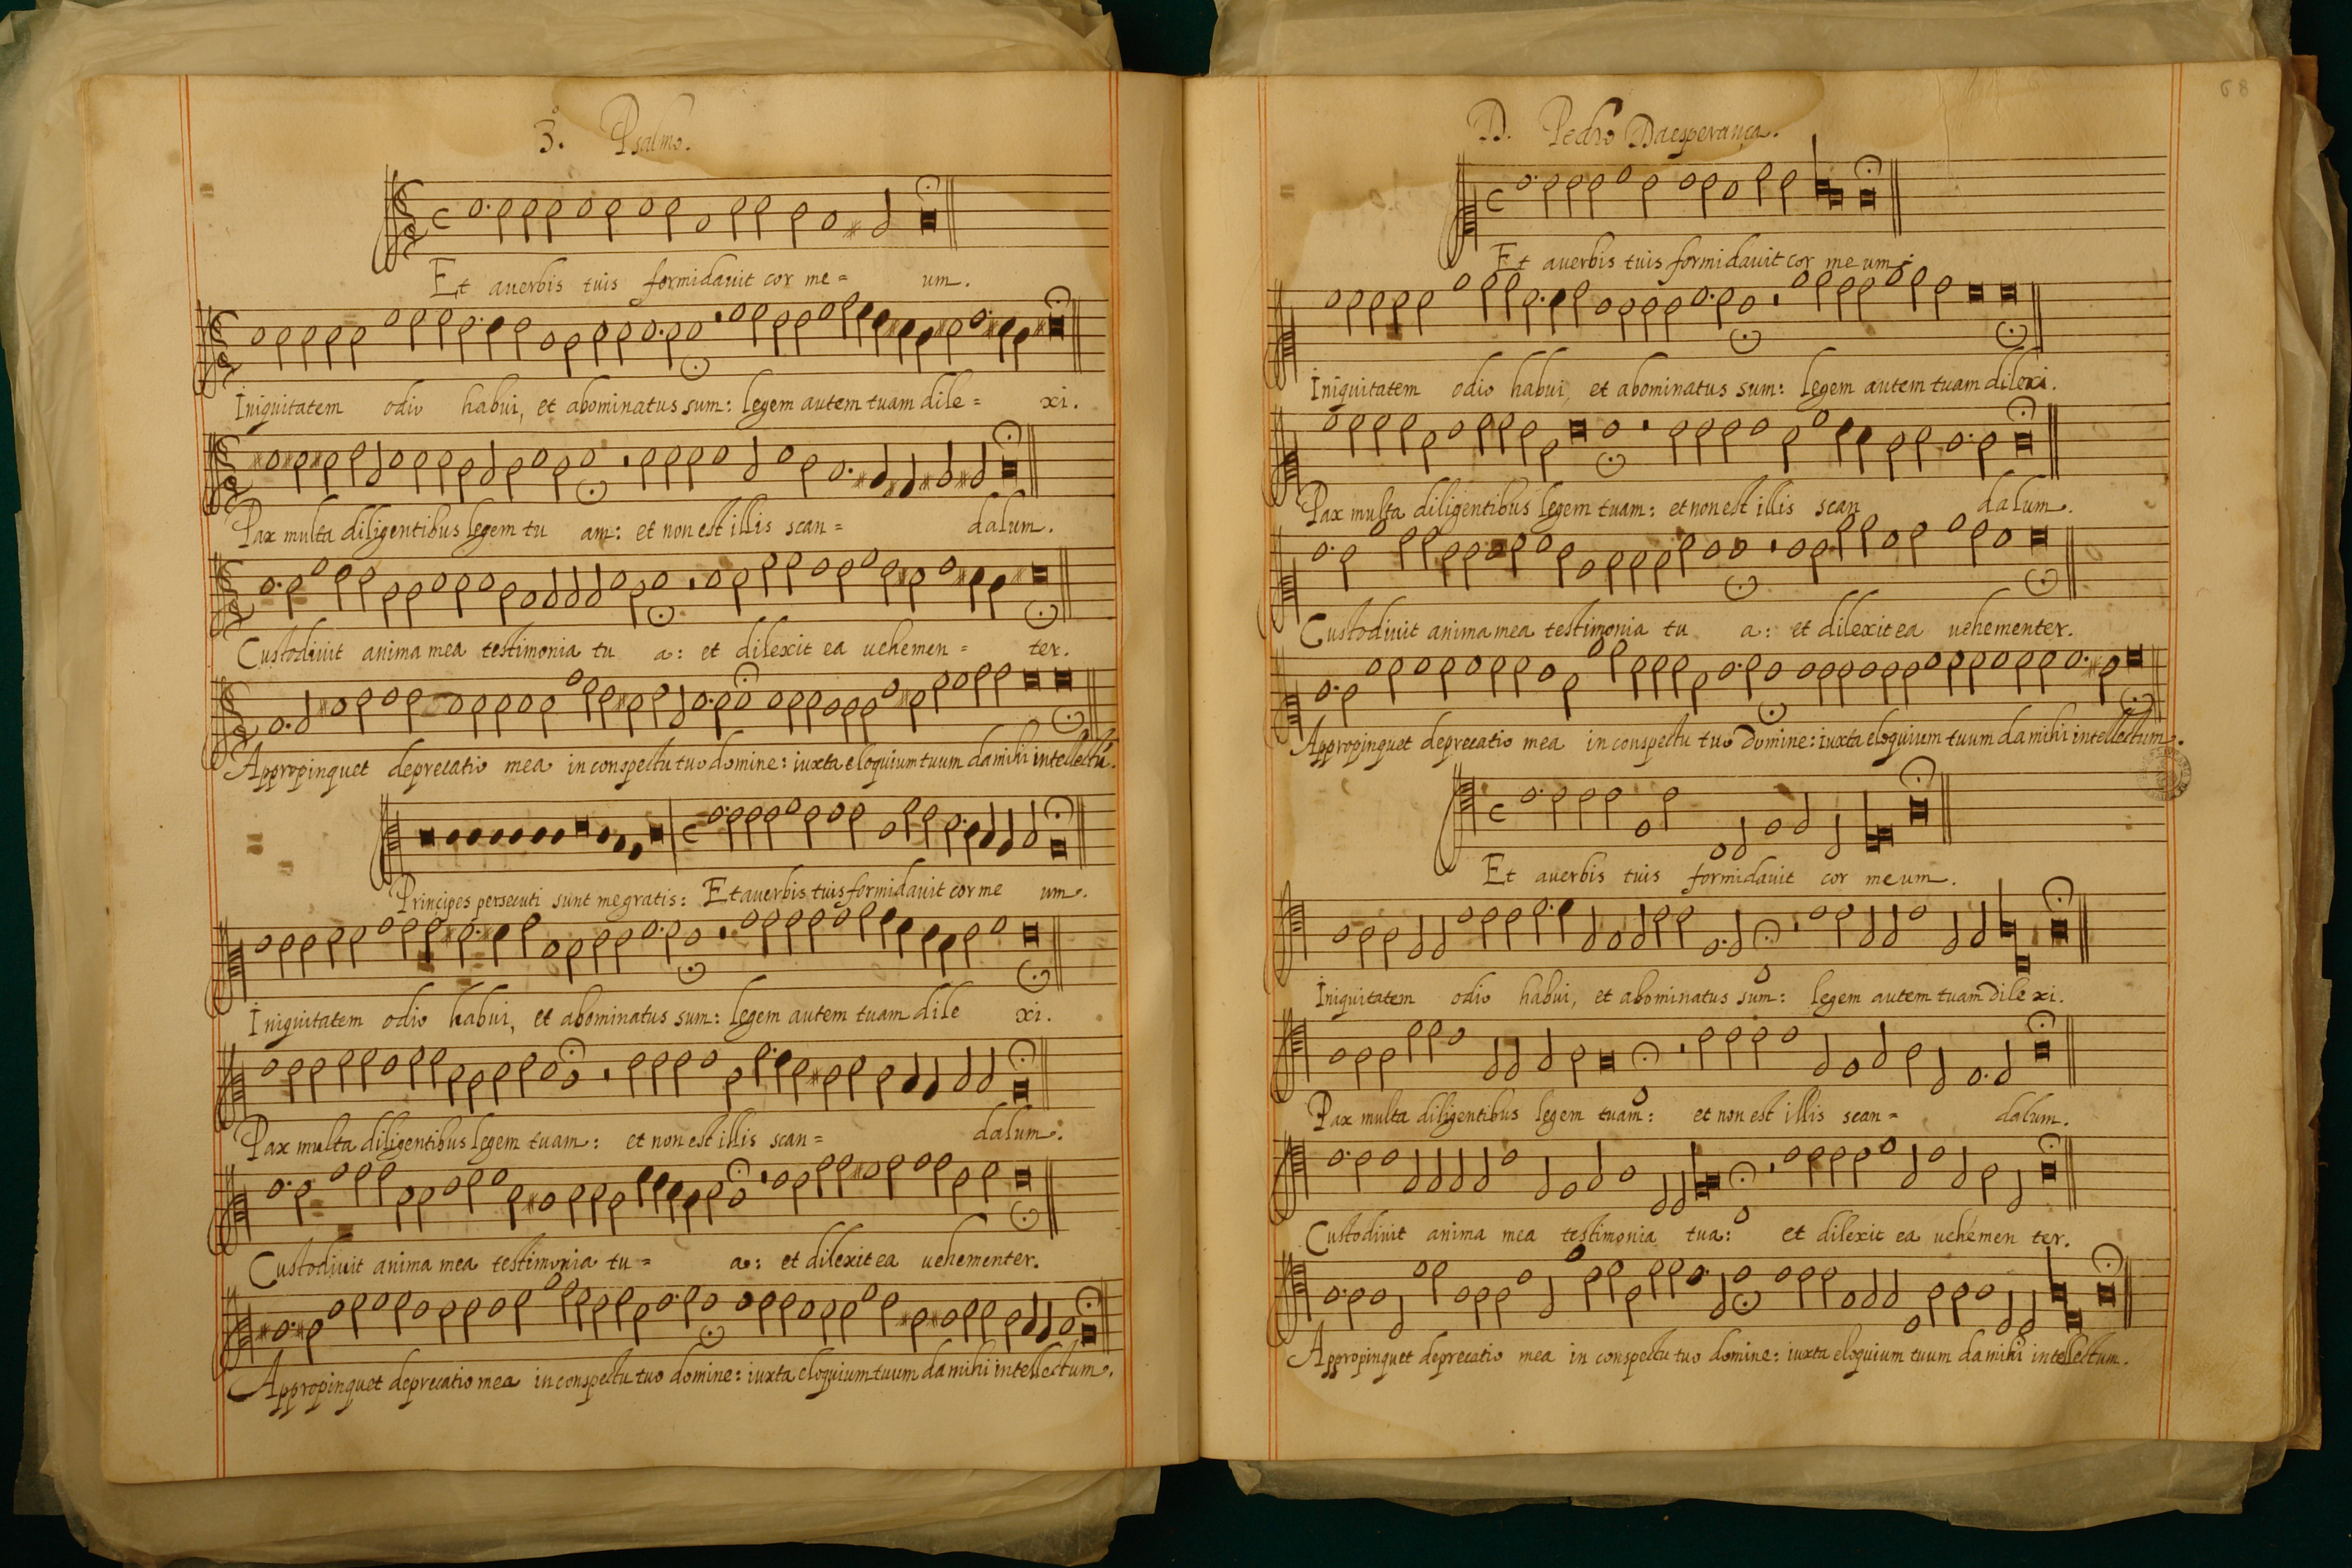 3. Psalmo.
Et a uerbis tuis formidauit cor me = um.
Iniquitatem odio habui, et abominatus sum: legem autem tuam dile = xi.
Pax multa diligentibus legem tu am: et non est illis scan = dalum.
Custodiuit anima mea testimonia tu a: et dilexit ea uehemen = ter.
Appropinquet deprecatio mea in conspectu tuo domine: iuxta eloquium tuum da mihi intellectū.
Principes persecuti sunt me gratis: Et a uerbis tuis formidauit cor me um.
Iniquitatem odio habui, et abominatus sum: legem autem tuam dile xi.
Pax multa diligentibus legem tuam: et non est illis scan = dalum.
Custodiuit anima mea testimonia tu = a: et dilexit ea uehementer.
Appropinquet deprecatio mea in conspectu tuo domine: iuxta eloquium tuum da mihi intellectum.
D. Pedro Daesperança.
68
Et a uerbis tuis formidauit cor me um.
Iniquitatem odio habui, et abominatus sum: legem autem tuam dilexi.
Pax multa diligentibus legem tuam: et non est illis scan dalum.
Custodiuit anima mea testimonia tu a: et dilexit ea uehementer.
Appropinquet deprecatio mea in conspectu tuo Domine: iuxta eloquium tuum da mihi intellectum.
Et a uerbis tuis formidauit cor meum.
Iniquitatem odio habui, et abominatus sum: legem autem tuam dile xi.
Pax multa diligentibus legem tuam: et non est illis scan = dalum.
Custodiuit anima mea testimonia tua: et dilexit ea uehemen ter.
Appropinquet deprecatio mea in conspectu tuo domine: iuxta eloquium tuum da mihi intellectum.